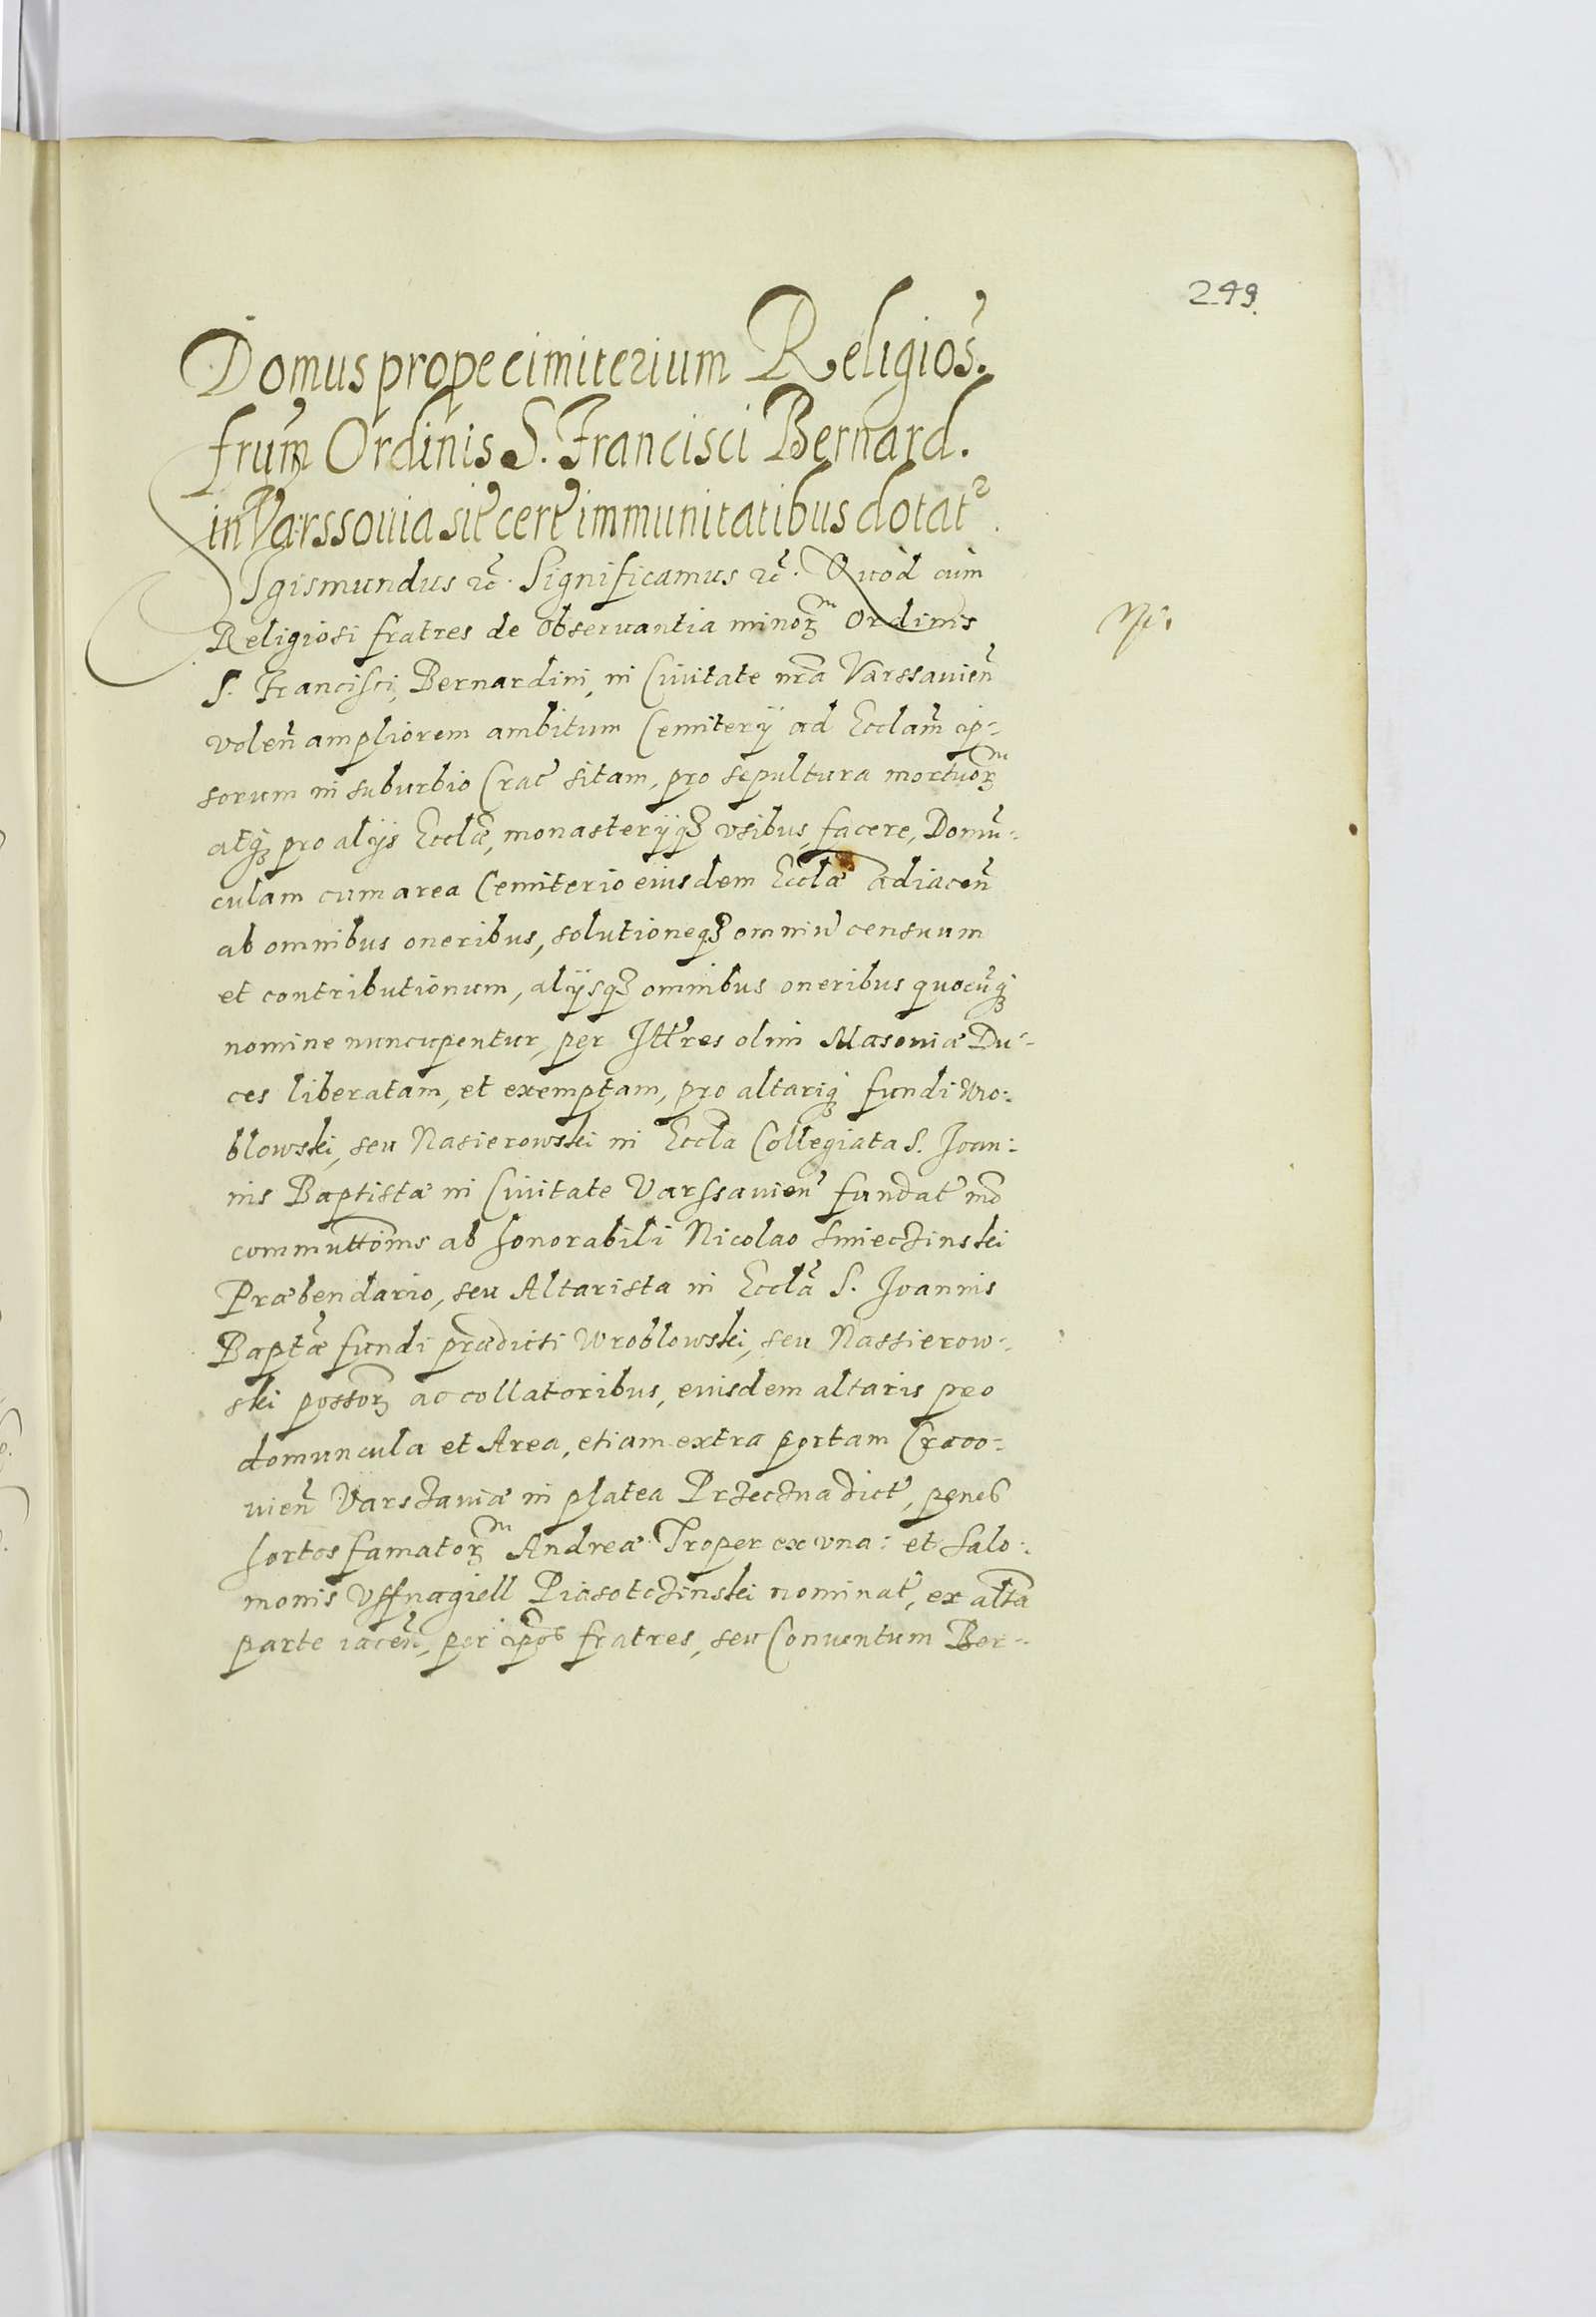 249.
Domus prope cimiterium Religios.
frum Ordinis S. Francisci Bernard.
in Varssouia sit cert immunitatibus dotat.
Sigismundus etc. Significamus etc. Quòd cum
Religiosi fratres de Obseruantia minorum Ordinis
S. Francisci, Bernardini, in Ciuitate nra Varssauien
volen ampliorem ambitum Cemiterij ad Ecclam ip-
sorum in suburbio Crac sitam, pro sepultura mortuorum
atq3 pro alijs Ecclæ, monasterijq3 vsibus, facere, Domu-
culam cum area Cemiterio eiusdem Ecclæ adiacen
ab omnibus oneribus, solutioneq3 omniu censuum
et contributionum, alijsq3 omnibus oneribus quocuq3
nomine nuncupentur, per Illres olim Masouiæ Du-
ces liberatam, et exemptam, pro altariq3 fundi Wro-
blowski, seu Nasierowski in Eccla Collegiata S. Joan-
nis Baptistæ in Ciuitate Varssauien fundat mo
commuttoins ab honorabili Nicolao Smieczinski
Præbendario, seu Altarista in Eccla S. Joannis
Baptæ fundi prædicti Wroblowski, seu Nassierow-
ski possor3 ac collatoribus, euisdem altaris pro
domuncula et Area, etiam extra portam Craco-
uien Varszauiæ in platea Przeczna dict, penes
hortos famatorum Andreæ Troper ex vna: et Salo-
monis Vffnagiell Piasotczinski nominat, ex alta
parte iacen, per ipos fratres, seu Conuentum Ber-